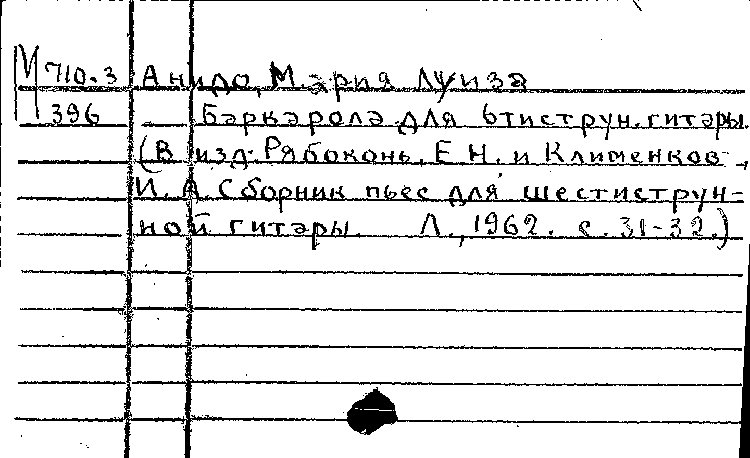 М 710-3 Анидо, Мария Луиза
396 Баркарола для 6тиструн. гитары.
(В изд: Рябоконь, Е. Н. и Клименков,
И. А. Сборник пьес для шестиструн-
ной гитары. Л., 1962. с. 31-32.)